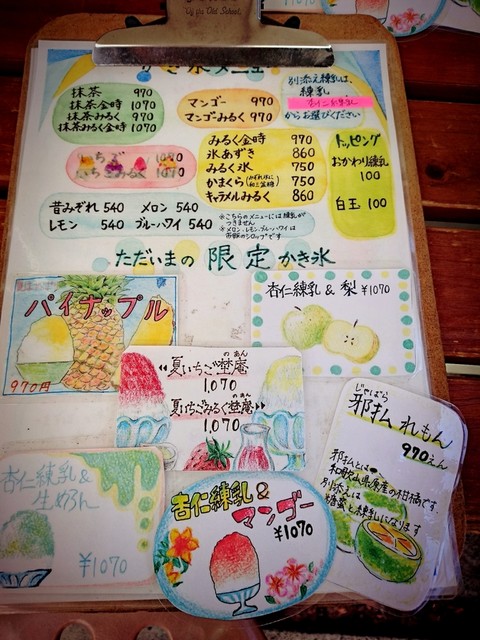 かき氷メニュー
抹茶 970
抹茶金時 1070
抹茶みるく 970
抹茶みるく金時 1070
マンゴー 970
マンゴーみるく 970
別添え練乳は、
練乳
杏仁練乳
からお選びください
いちご
いちごみるく
みるく金時 970
氷あずき 860
みるく氷 750
かまくら 750
キャラメルみるく 860
トッピング
おかわり練乳
100
白玉 100
昔みぞれ 540 メロン 540
レモン 540 ブルーハワイ 540
※こちらのメニューには練乳が
つきません
※メロン、レモン、ブルーハワイは
ただいまの 限定 かき氷
パイナップル
970円
杏仁練乳 & 梨 ¥1070
夏いちご埜庵
のあん
1,070
夏いちごみるく埜庵
のあん
1,070
じゃばら
邪払れもん
970えん
邪払とは、
和歌山県原産の柑橘です。
別添えは
糖蜜と練乳になります
杏仁練乳 &
生めろん
¥1070
杏仁練乳&
マンゴー
¥1070